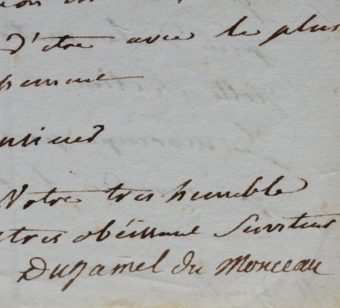 D'etre avec le plus
Monsieur
Votre tres humble
et tres obéissant Serviteur
Duhamel du Monceau